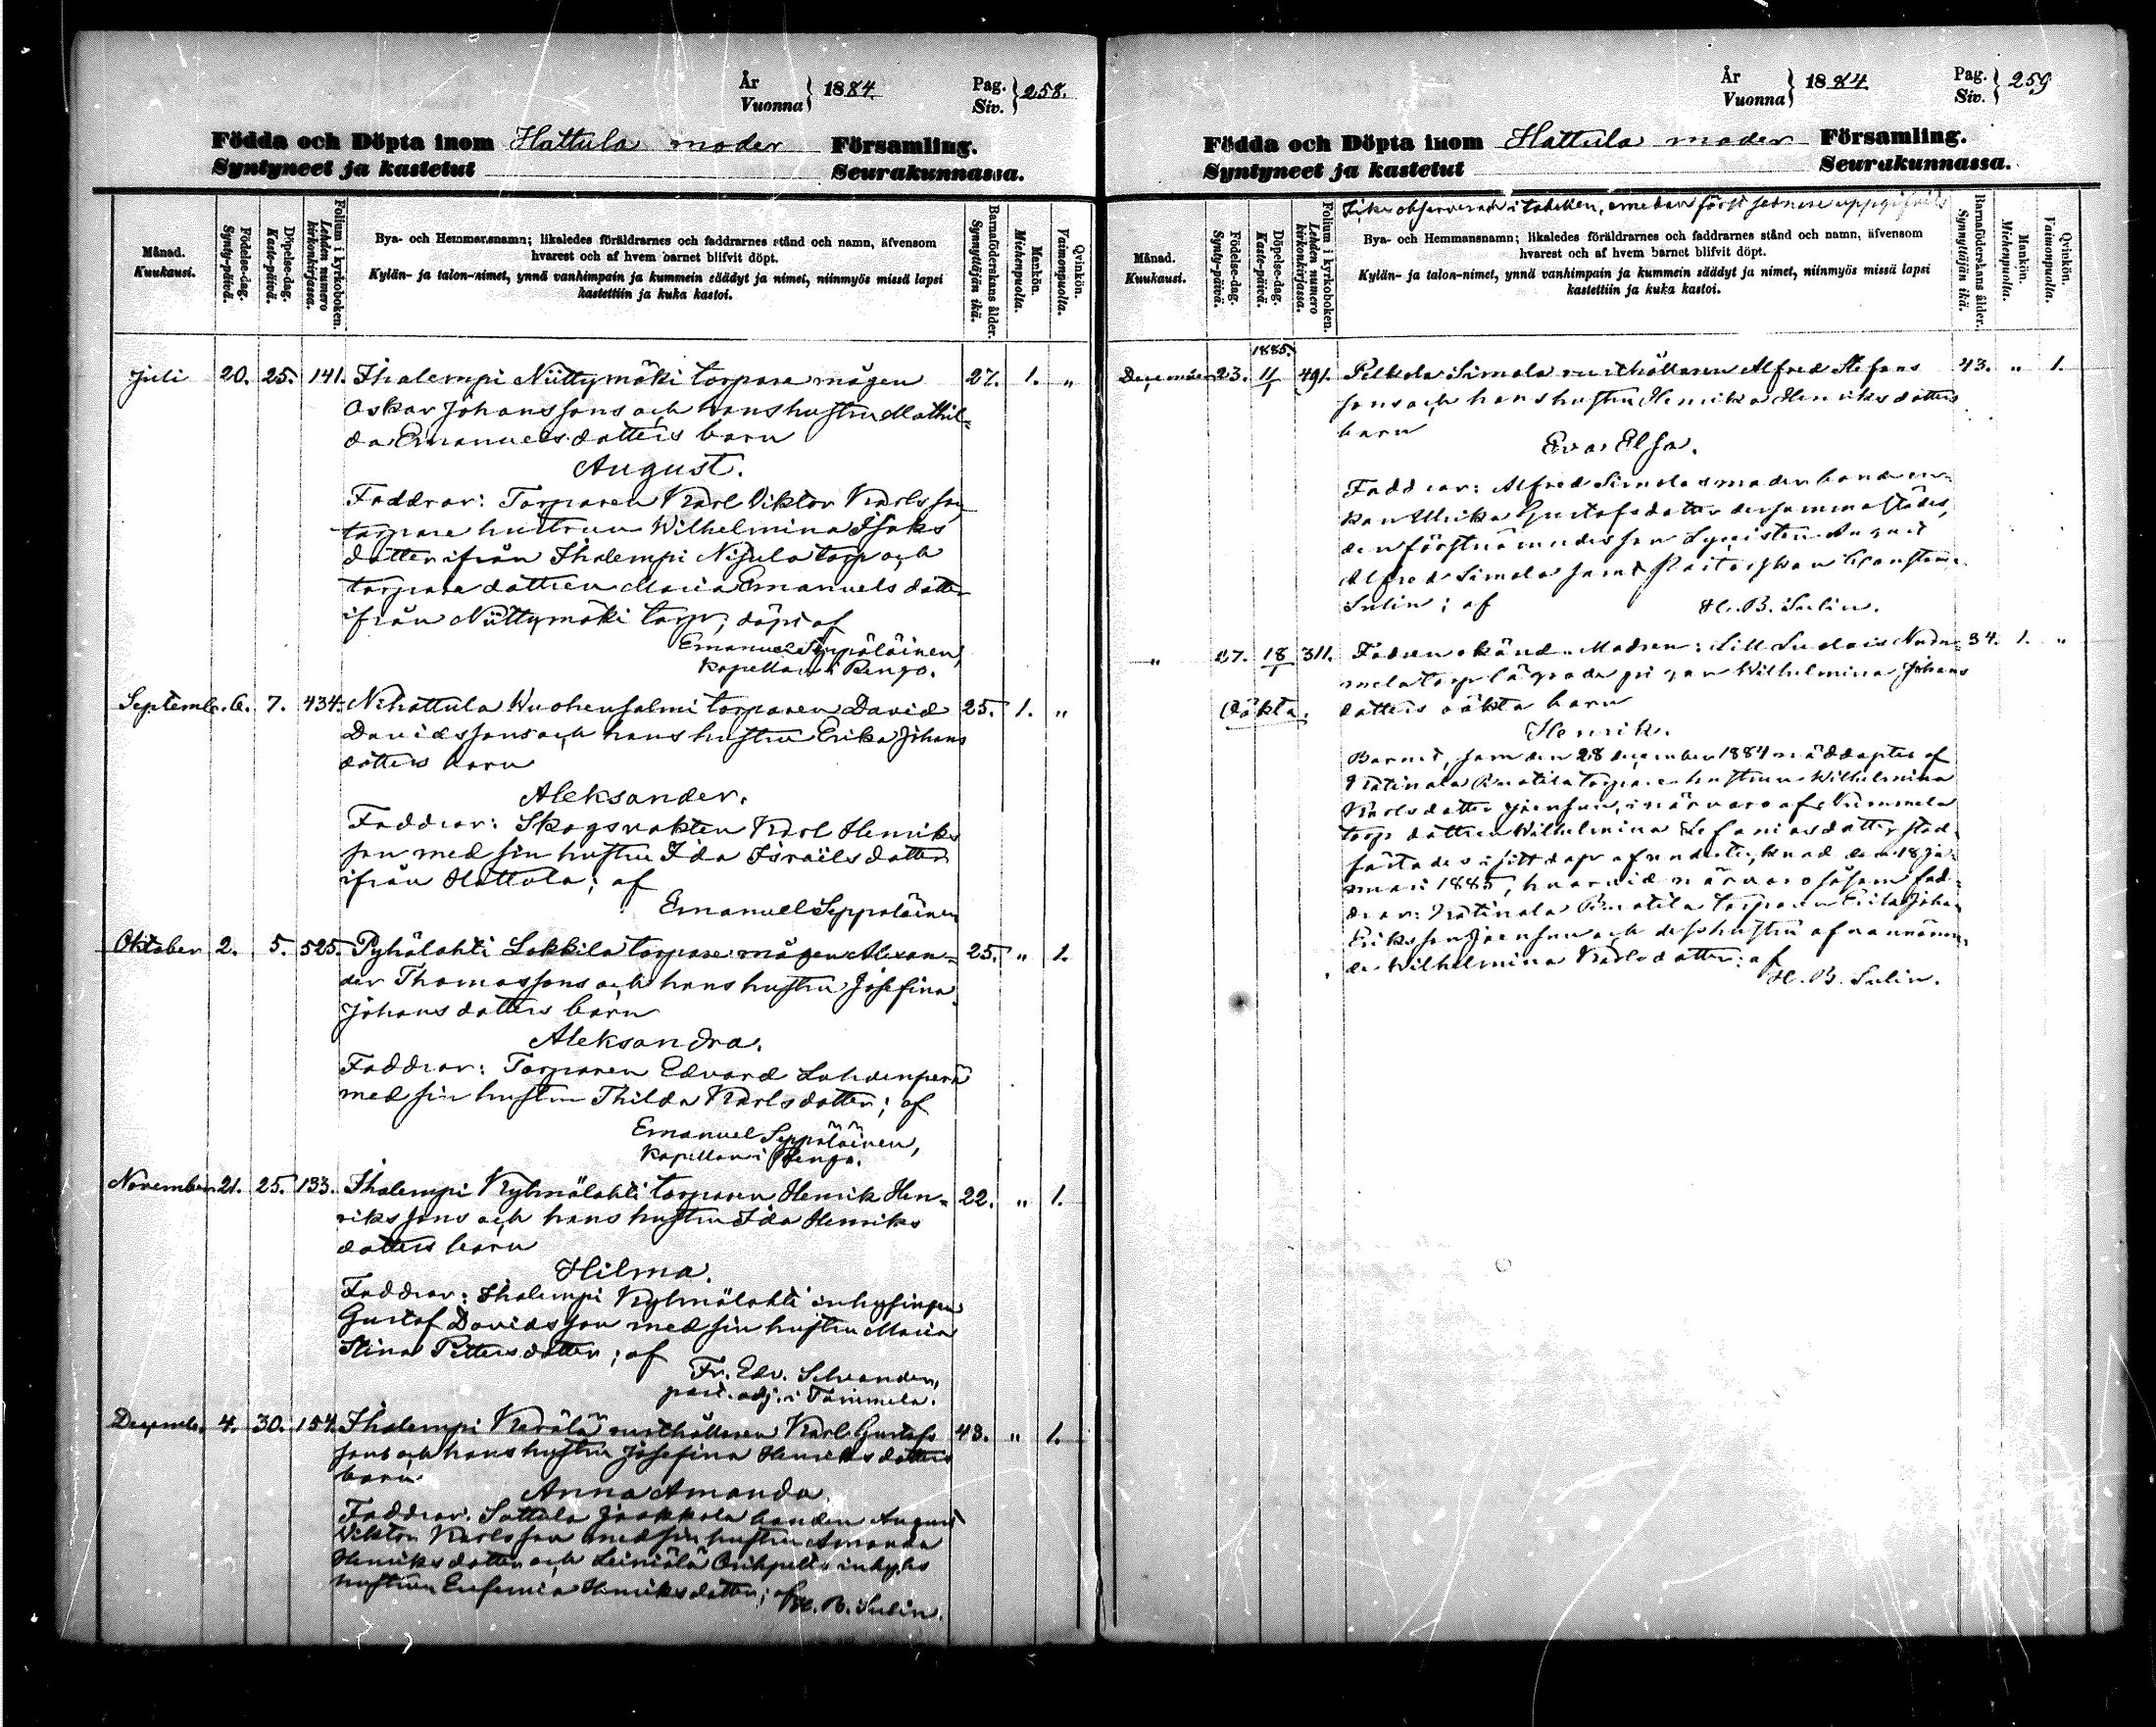 År
Vuonna } 1884.
Pag.
Siv. } 258.
Födda och Döpta inom Hattula moder Församling.
Syntyneet ja kastetut Seurakunnassa.
Månad.
Kuukausi.
Födelse-dag.
Synty-päivä.
Döpelse-dag.
Kaste-päivä.
Folium i kyrkoboken.
Lehden numero
kirkonkirjassa.
Bya- och Hemmansnamn; likaledes föräldrarnes och faddrarnes stånd och namn, äfvensom
hvarest och af hvem barnet blifvit döpt.
Kylän- ja talon-nimet, ynnä vanhimpain ja kummein säädyt ja nimet, niinmyös missä lapsi
kastettiin ja kuka kastoi.
Barnaföderskans ålder.
Synnyttäjän ikä.
Mankön.
Miehenpuolta.
Qvinkön.
Vaimonpuolta.
Juli 20. 25. 141. Ihalempi Niittymäki torpare mågen 27. 1. "
Oskar Johanssons och hans hustru Mathil=
da Emanuelsdotters barn
August.
Faddrar: Torparen Karl Viktor Karlsson
torpare hustrun Wilhelmina Isaks
dotter ifrån Ihalempi Nijula torp och
torpare dottren Maria Emanuels dotter
ifrån Niittymäki torp; döpt af
Emanuel Seppäläinen,
Kapellan i Rengo.
Septemb. 6. 7. 434. Nihattula Wuohensalmi torparen David 25. 1. "
Davidssons och hans hustru Erika Johans
dotters barn
Aleksander.
Faddrar: Skogsvakten Karl Henriks
son med sin hustru Ida Israëls dotter
ifrån Hattula; af
Emanuel Seppäläinen
Oktober 2. 5. 525. Pyhälahti Lokkila torpare mågen Alexan= 25. " 1.
der Thomassons och hans hustru Josefina
Johans dotters barn
Aleksandra.
Faddrar: Torparen Edvard Lahdenperä
med sin hustru Thilda Karlsdotter; af
Emanuel Seppäläinen,
Kapellan i Rengo.
November 21. 25. 133. Ihalempi Kylmälahti torparen Henrik Hen= 22. " 1.
rikssons och hans hustru Ida Henriks
dotters barn
Hilma.
Faddrar: Ihalempi Kylmälahti inhysingen
Gustaf Davidsson med sin hustru Maria
Stina Petters dotter; af
Fr. Edv. Selvander,
past. adj. i Tammela.
Decemb. 4. 30. 154. Ihalempi Kerälä rusthållaren Karl Gustafs 43. " 1.
sons och hans hustru Josefina Henriks dotters
barn
Anna Amanda
Faddrar: Sattula Jaakkola bonden August
Viktor Karlsson med sin hustru Amanda
Henriks dotter och Leiniälä inhyses
hustrun Eufemia Henriksdotter; af H. B. Sulin.
År
Vuonna } 1884
Pag.
Siv. } 259
Födda och Döpta inom Hattula moder Församling.
Syntyneet ja kastetut Seurakunnassa.
observerade i tabellen, emedan först sednare uppgifvits
Månad.
Kuukausi.
Födelse-dag.
Synty-päivä.
Döpelse-dag.
Kaste-päivä.
Folium i kyrkoboken.
Lehden numero
kirkonkirjassa.
Bya- och Hemmansnamn; likaledes föräldrarnes och faddrarnes stånd och namn, äfvensom
hvarest och af hvem barnet blifvit döpt.
Kylän- ja talon-nimet, ynnä vanhimpain ja kummein säädyt ja nimet, niinmyös missä lapsi
kastettiin ja kuka kastoi.
Barnaföderskans ålder.
Synnyttäjän ikä.
Mankön.
Miehenpuolta.
Qvinkön.
Vaimonpuolta.
1885.
December 23. 11/1 491. Pelkola Simola rusthållaren Alfred Stefans 43. " 1.
sons och hans hustru Henrika Henriksdotters
barn
Eva Elsa.
Faddrar: Alfred Simolas moder bonde en=
kan Ulrika Gustafsdotter dersammastädes,
den förstnämndes son Lyceisten August
Alfred Simola samt Konstantin
Sulin; af H. B. Sulin.
" 27. 18/1 311. Fadren okänd. Modren: Lill Luolais Num= 34. 1. "
mela torp lägrade pigan Wilhelmina Johans
Oäkta. dotters oäkta barn
Henrik.
Barnet, som den 28 december 1884 nöddöptes af
Ketinala torpare hustrun Wilhelmina
Karlsdotter Joensuu, i närvaro af Nummela
torp dottren Wilhelmina Stefaniasdotter, stad=
fästades i sitt dop af undertecknad den 18 ja=
nuari 1885, hvarvid närvoro såsom fad=
drar: Ketinala torparen Erik Johan
Eriksson Joensuu och dess hustru ofvannämn=
de Wilhelmina Karlsdotter; af
H. B. Sulin.